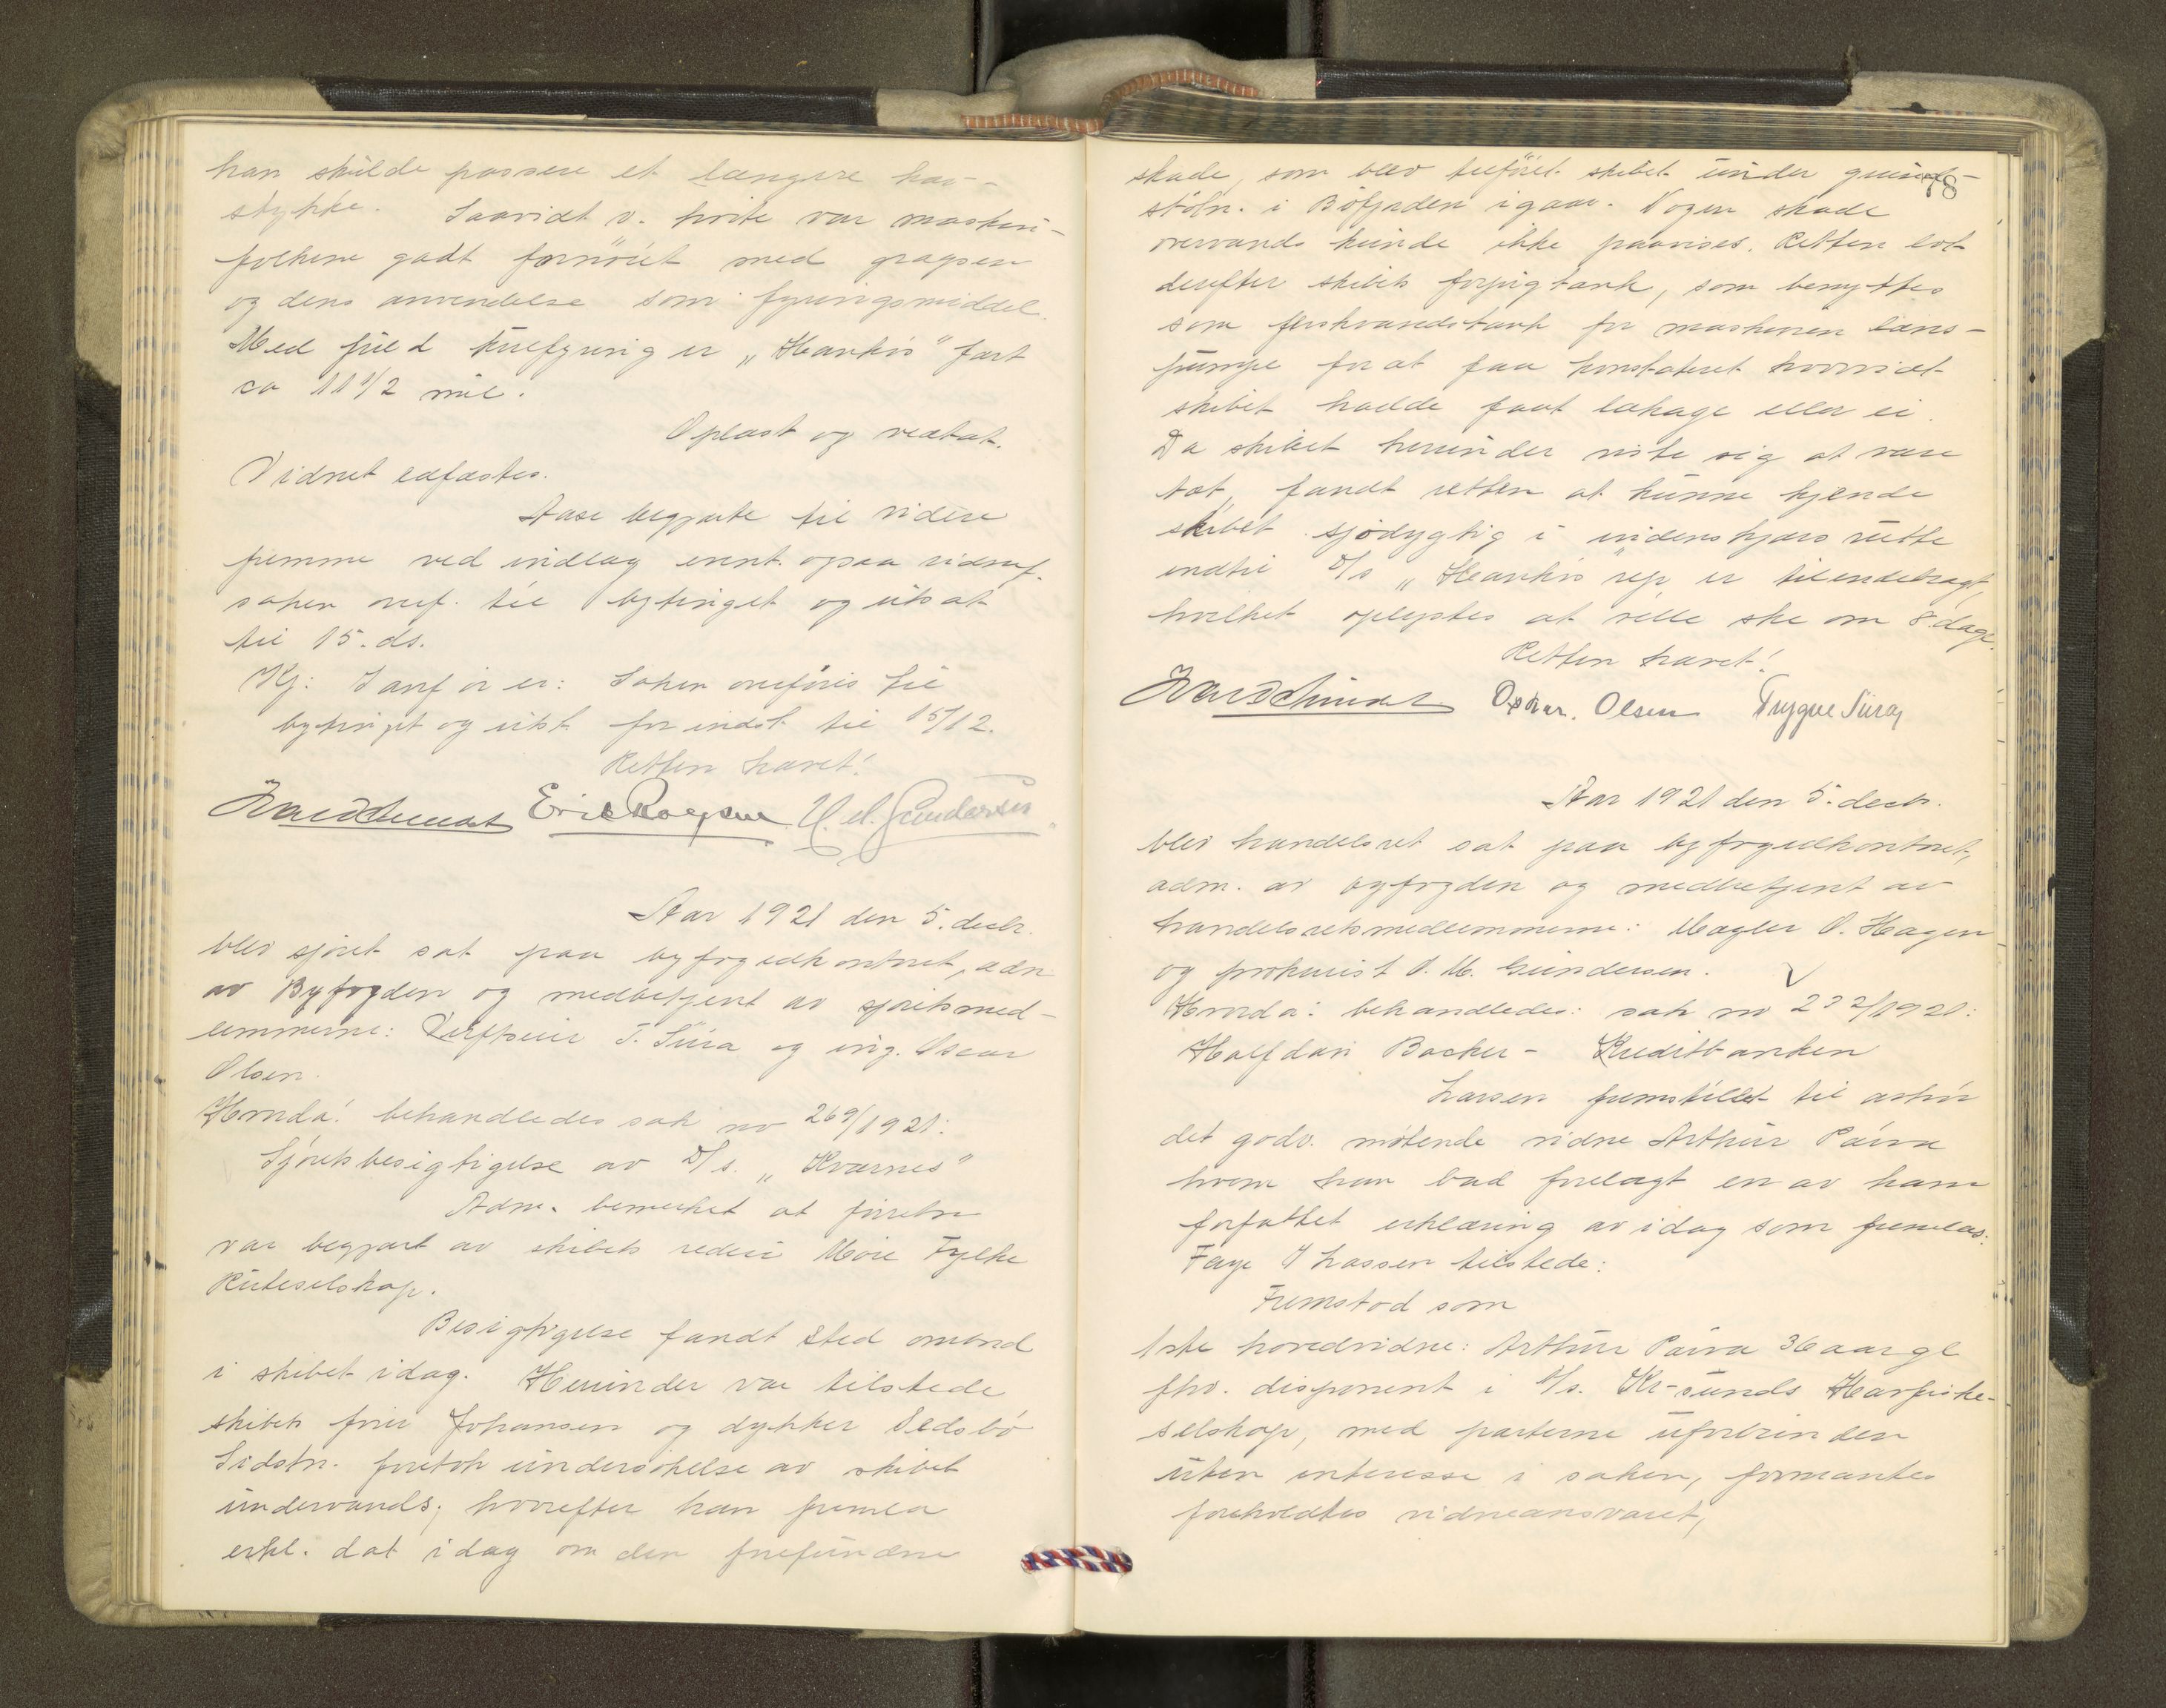 han skulde passere et længere hav-
stykke. Saavidt v. vite var maskin-
folkene godt fornöiet med grapsen
og dens anvendelse som fyringsmiddel.
Med fuld kulfyring er „Hankös" fart
ca 11 1/2 mil.
Oplæst og vedtat.
Vidnet edfæstes.
Aase begjærte til videre
fremme ved indlæg event. ogsaa vidnef.
saken overf. til bytinget og utsat
til 15. ds.
Kj: Janf ör er: Saken overföres til
bytinget og utst. for indst til 15/12.
Retten hævet!
Eric Rogsen
Aar 1921 den 5. decbr.
blev sjöret sat paa byfogedkontoret, adm
av Byfogden og medbetjent av sjöretsmed-
lemmerne: T. Sura og ing. Oscar
Olsen.
Hvorda! behandledes sak no 269/1921:
Sjöretsbesigtigelse av D/s. „Kværnes"
Adm. bemerket at forretn
var begjært av skibets rederi Möre Fylke
Ruteselskap.
Besigtigelse fandt sted ombord
i skibet idag. Herunder var tilstede
skibets förer Johansen og dykker Sedsbö
Sidstn. foretok undersökelse av skibet
undervands, hvorefter han fremla
erkl. dat idag om den forefundne
78
skade, som blev tilföiet skibet under grund-
stötn. i Böfjorden igaar. Nogen skade
overvands kunde ikke paavises. Retten lot
derefter skibets forpigtank, som benyttes
som ferskvandstank for maskinen læns-
pumpe for at faa konstateret hvorvidt
skibet hadde faat lækage eller ei.
Da skibet herunder viste sig at være
tæt, fandt retten at kunne kjende
skibet sjödygtig i indenskjærs rutte
indtil D/s „Hankös" rep. er tilendebragt,
hvilket oplystes at ville ske om 8 dage.
Retten hævet!
Oskar. Olsen Trygve Sura
Aar 1921 den 5. decbr.
blev handelsret sat paa byfogedkontoret,
adm. av byfogden og medbetjent av
handelsretsmedlemmerne: Mægler O. Hagen
og prokurist O. M. Gundersen.
Hvorda: behandledes: sak no 232/1921:
Halfdan Backer - Kreditbanken
Larsen fremstillet til avhör
det godv. mötende vidne Arthur Páiva
hvem han bad forelagt en av ham
forfattet erklæring av idag som fremlas:
Faye & Lassen tilstede:
Fremstod som
1ste hovedvidne: Arthur Páiva 36 aar gl
fhv. disponent i A/s. Kr-sunds Havfiske-
selskap, med parterne uforbunden
uten interesse i saken, formantes
foreholdtes vidneansvaret,